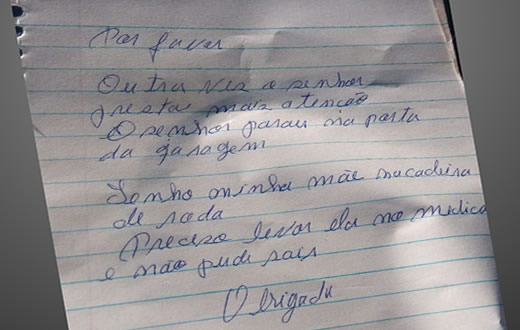 Por favor
Outra vez o senhor
presta mais atenção
O senhor parau na porta
da garagem
Tenho minha mãe na cadeira
de roda
Preciso levar ela no medico
e não pude sair
Obrigada